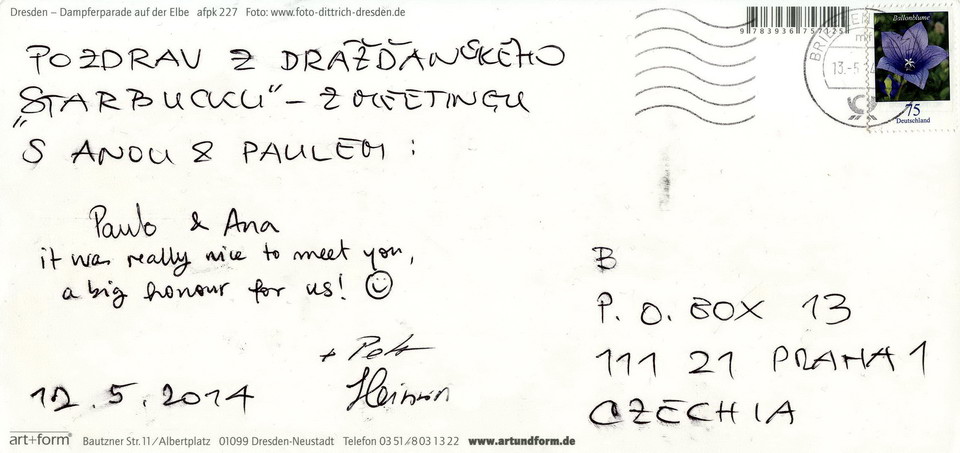 Dresden – Dampferparade auf der Elbe afpk 227 Foto: www.foto-dittrich-dresden.de
9 783936 757125
Ballonblume
75
Deutschland
13.-5.
POZDRAV Z DRÁŽĎANSKÉHO
„STARBUCKU“ – Z MEETINGU
S ANOU & PAULEM :
Paulo & Ana
it was really nice to meet you,
a big honour for us! ☺
+ Petr
12.5.2014
B
P. O. BOX 13
111 21 PRAHA 1
CZECHIA
art+form® Bautzner Str. 11/Albertplatz 01099 Dresden-Neustadt Telefon 03 51/8 03 13 22 www.artundform.de